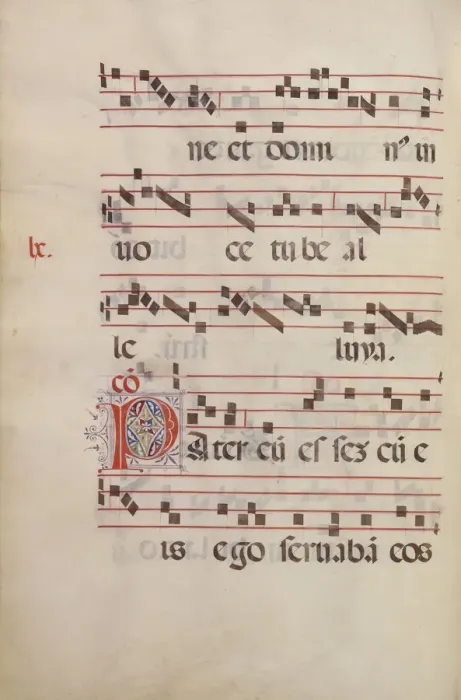 ne et domi nꝰ in
lx. uo ce tube al
le luya.
cō
Pater cū essez cū e
is ego seruabā eos